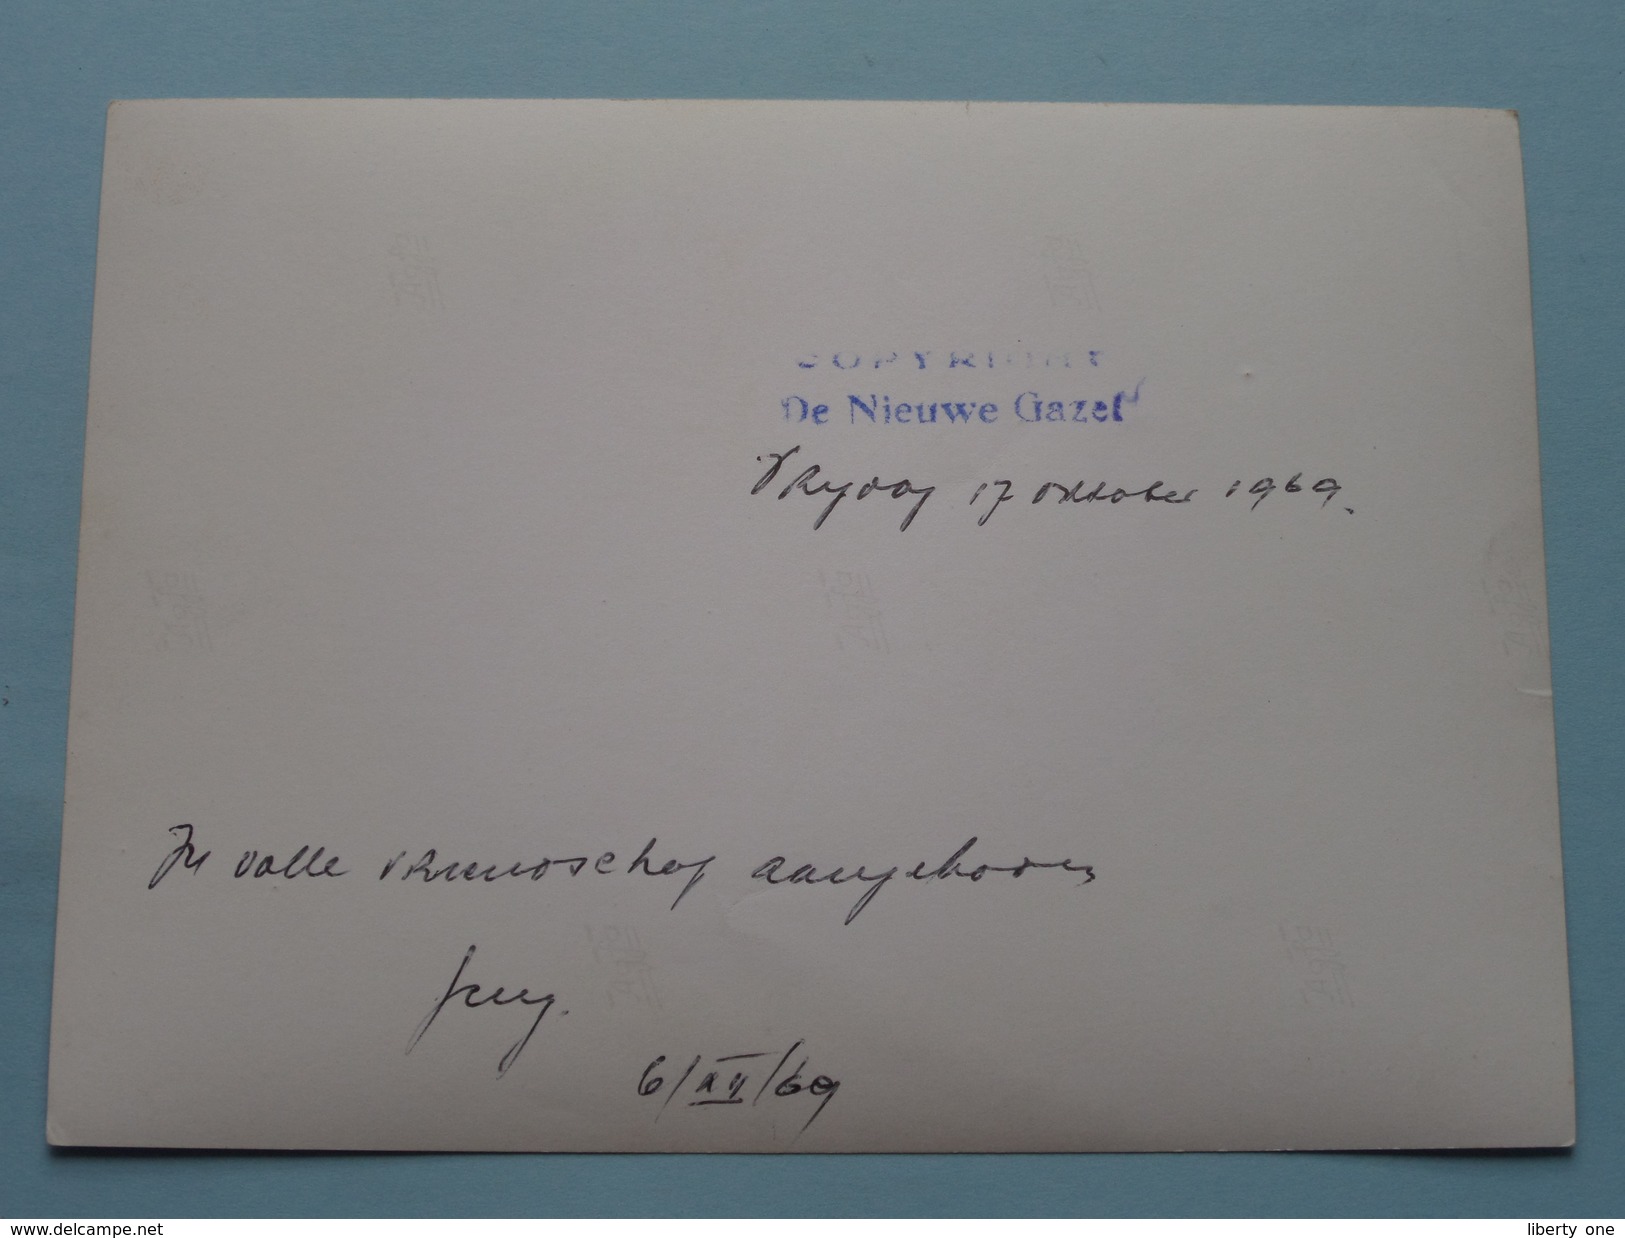 COPYRIGHT
De Nieuwe Gazet
Vrijdag 17 oktober 1969.
In volle vriendschap aangeboden
6/XII/69
www.delcampe.net
liberty_one